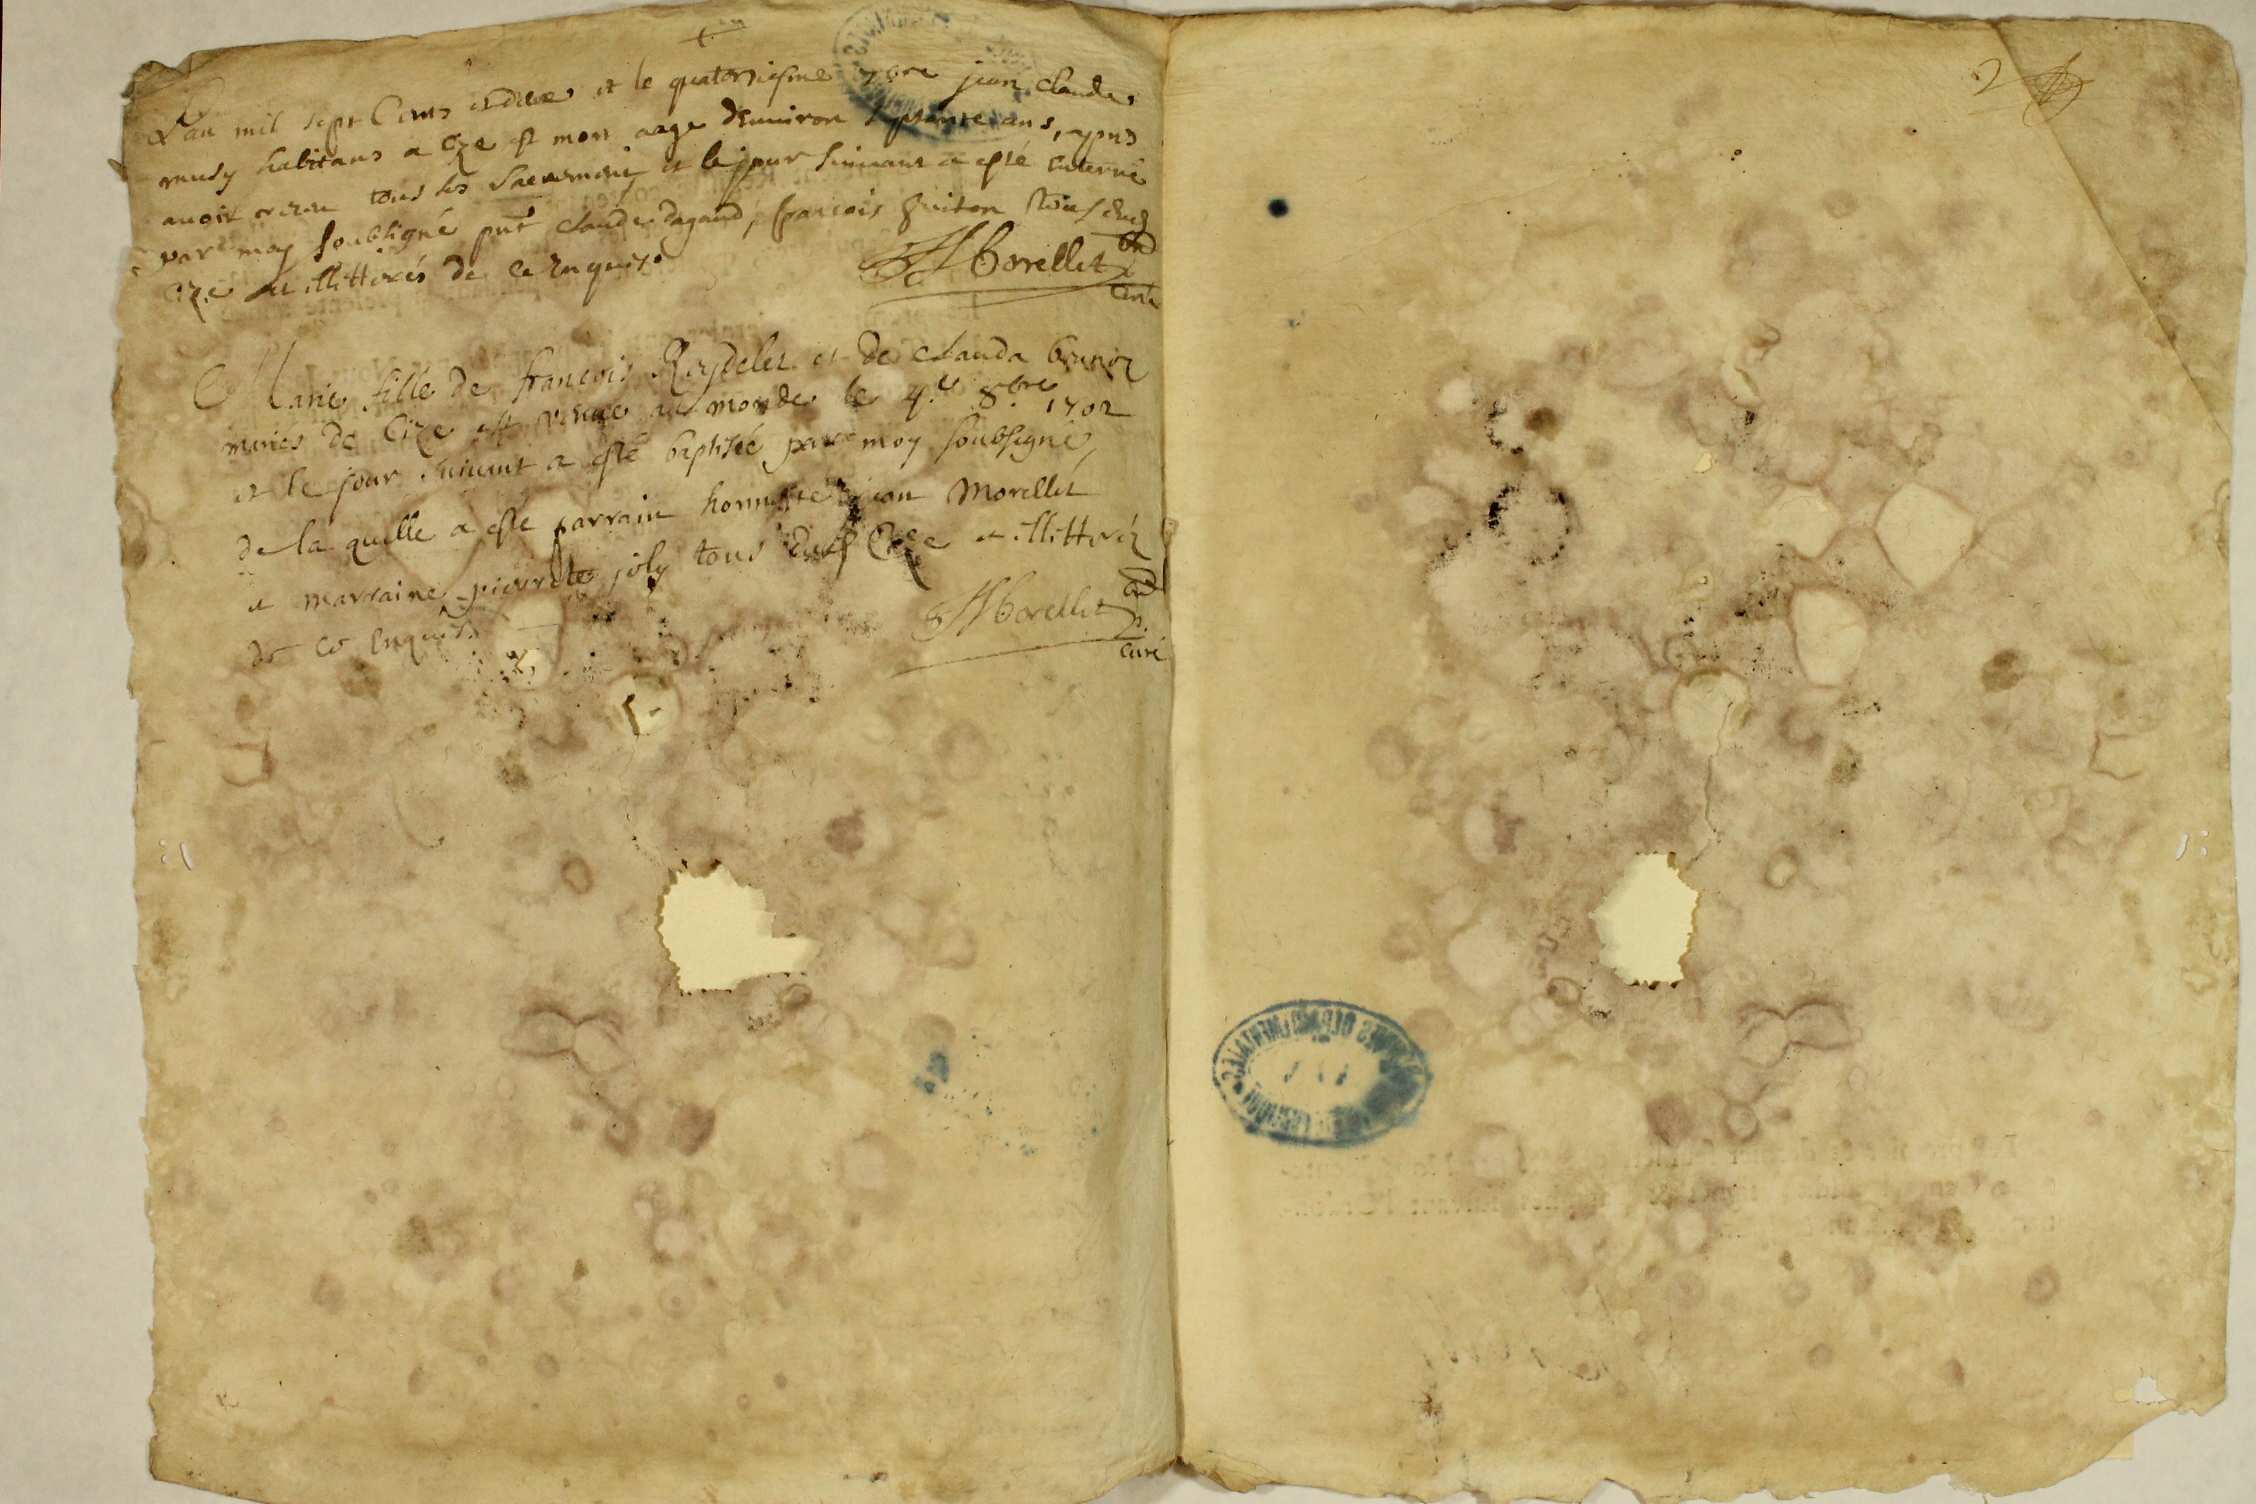 L'an mil sept Cents et deux et le quatorziesme 7bre jean claude
musy habitans a Cize est mort aage d'environ septante ans, apres
avoir receu tous les Sacrements et le jour suivant a esté enterré
par moy soubsigné pnt claude dagand, francois guiton tous dud
Cize et illitterés de ce enquis.
Morellet
curé
Marie fille de francois Reydelet et de clauda
mariés de Cize est venue au monde le 4e 8bre 1702
et le jour suivant a esté baptisée par moy soubsigné,
de la quelle a esté parrain honneste jean Morellet
et marraine pierrete joly tous dud Cize et illitteréz
de ce enquis
Morellet
curé
2